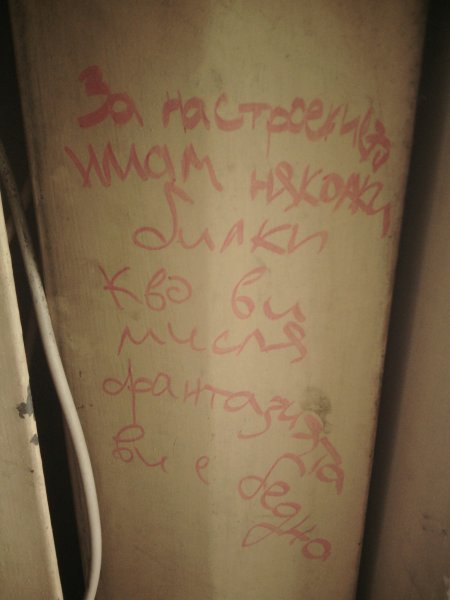 За настроението
имам няколки
билки
кво ви
мисля
фантазията
ви е бедна